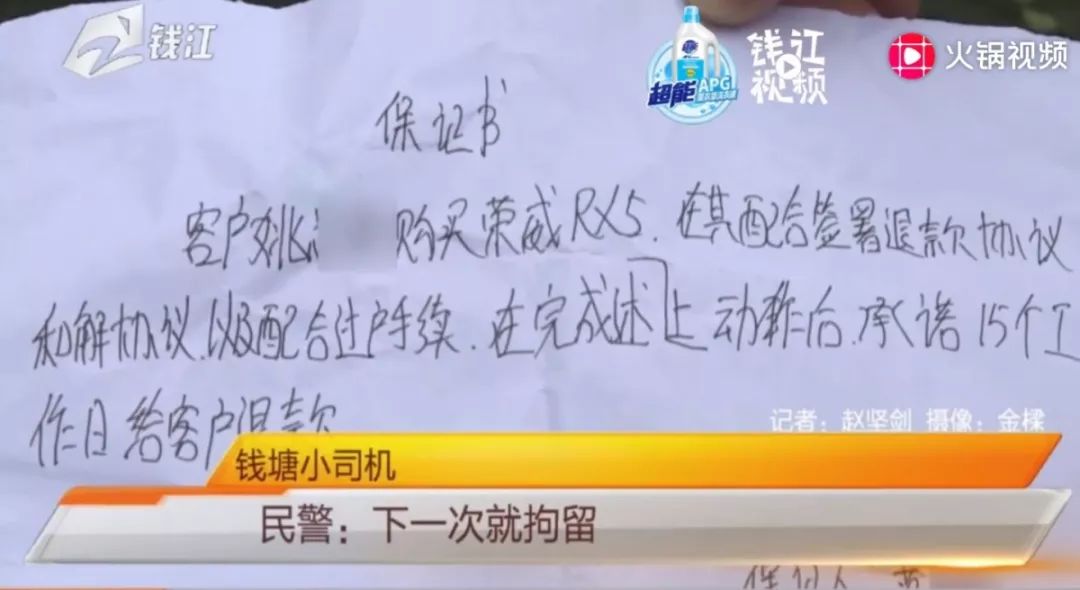 钱江
超能
APG
钱江
视频
火锅视频
保证书
客户姚 购买荣威RX5.在其配合签署退款协议
和解协议.以及配合过户手续.在完成述上动作后.承诺15个工
作日给客户退款
记者：赵坚剑 摄像：金樑
钱塘小司机
民警：下一次就拘留
保证人 黄